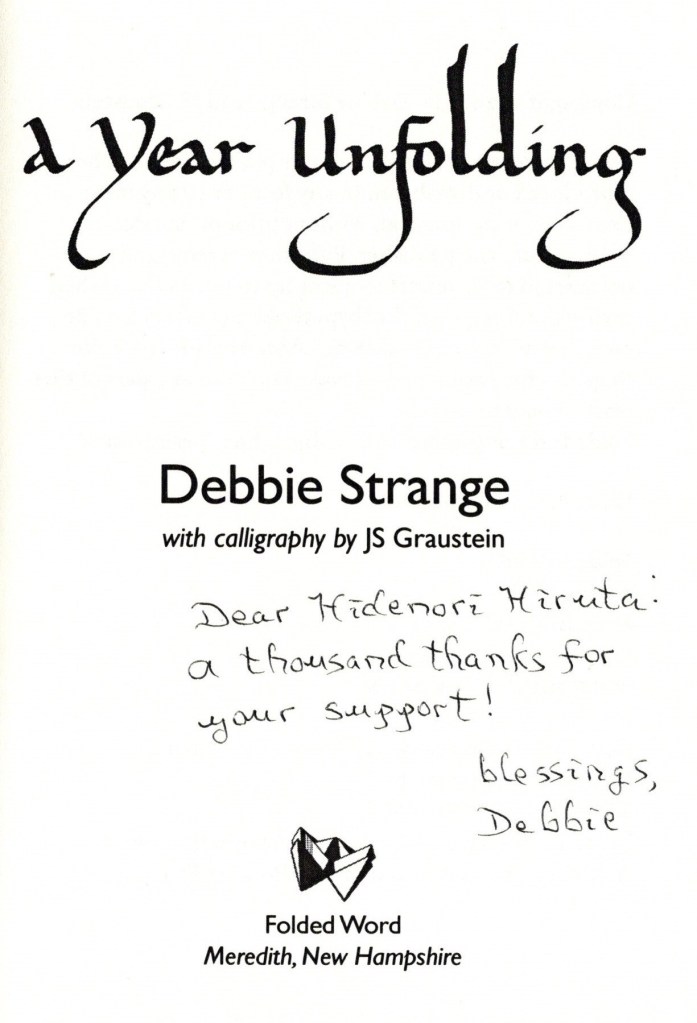 a Year Unfolding
Debbie Strange
with calligraphy by JS Graustein
Dear Hidenori Hiruta:
a thousand thanks for
your support!
blessings,
Debbie
Folded Word
Meredith, New Hampshire